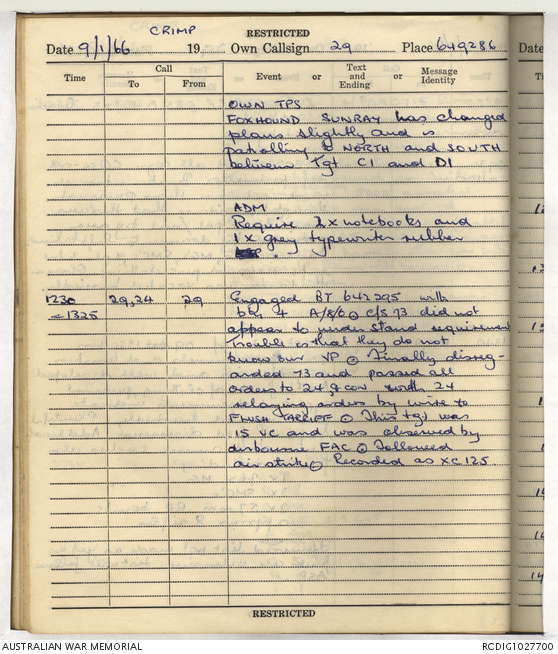 CRIMP
RESTRICTED
Date 9/1/66 19 Own Callsign 29 Place 649286
Date
Time Call Event or Text and Ending or Message Identity
To From
OWN TPS
FOXHOUND SUNRAY has changed
plans slightly and is
patrolling to NORTH and SOUTH
between Tgt C1 and D1
ADM
Require 2 x notebooks and
1 x grey typewriter rubber
1230 29,24 29 Engaged BT 642295 with
=1325 bty 4 A/R/O c/s 73 did not
appear to understand requirement
Trouble is that they do not
know our VP Finally disreg-
arded 73 and passed all
orders to 24 with 24
relaying orders by wire to
This tgt was
15 VC and was observed by
airbourne FAC Followed
air strike Recorded as XC125
RESTRICTED
AUSTRALIAN WAR MEMORIAL
RCDIG1027700